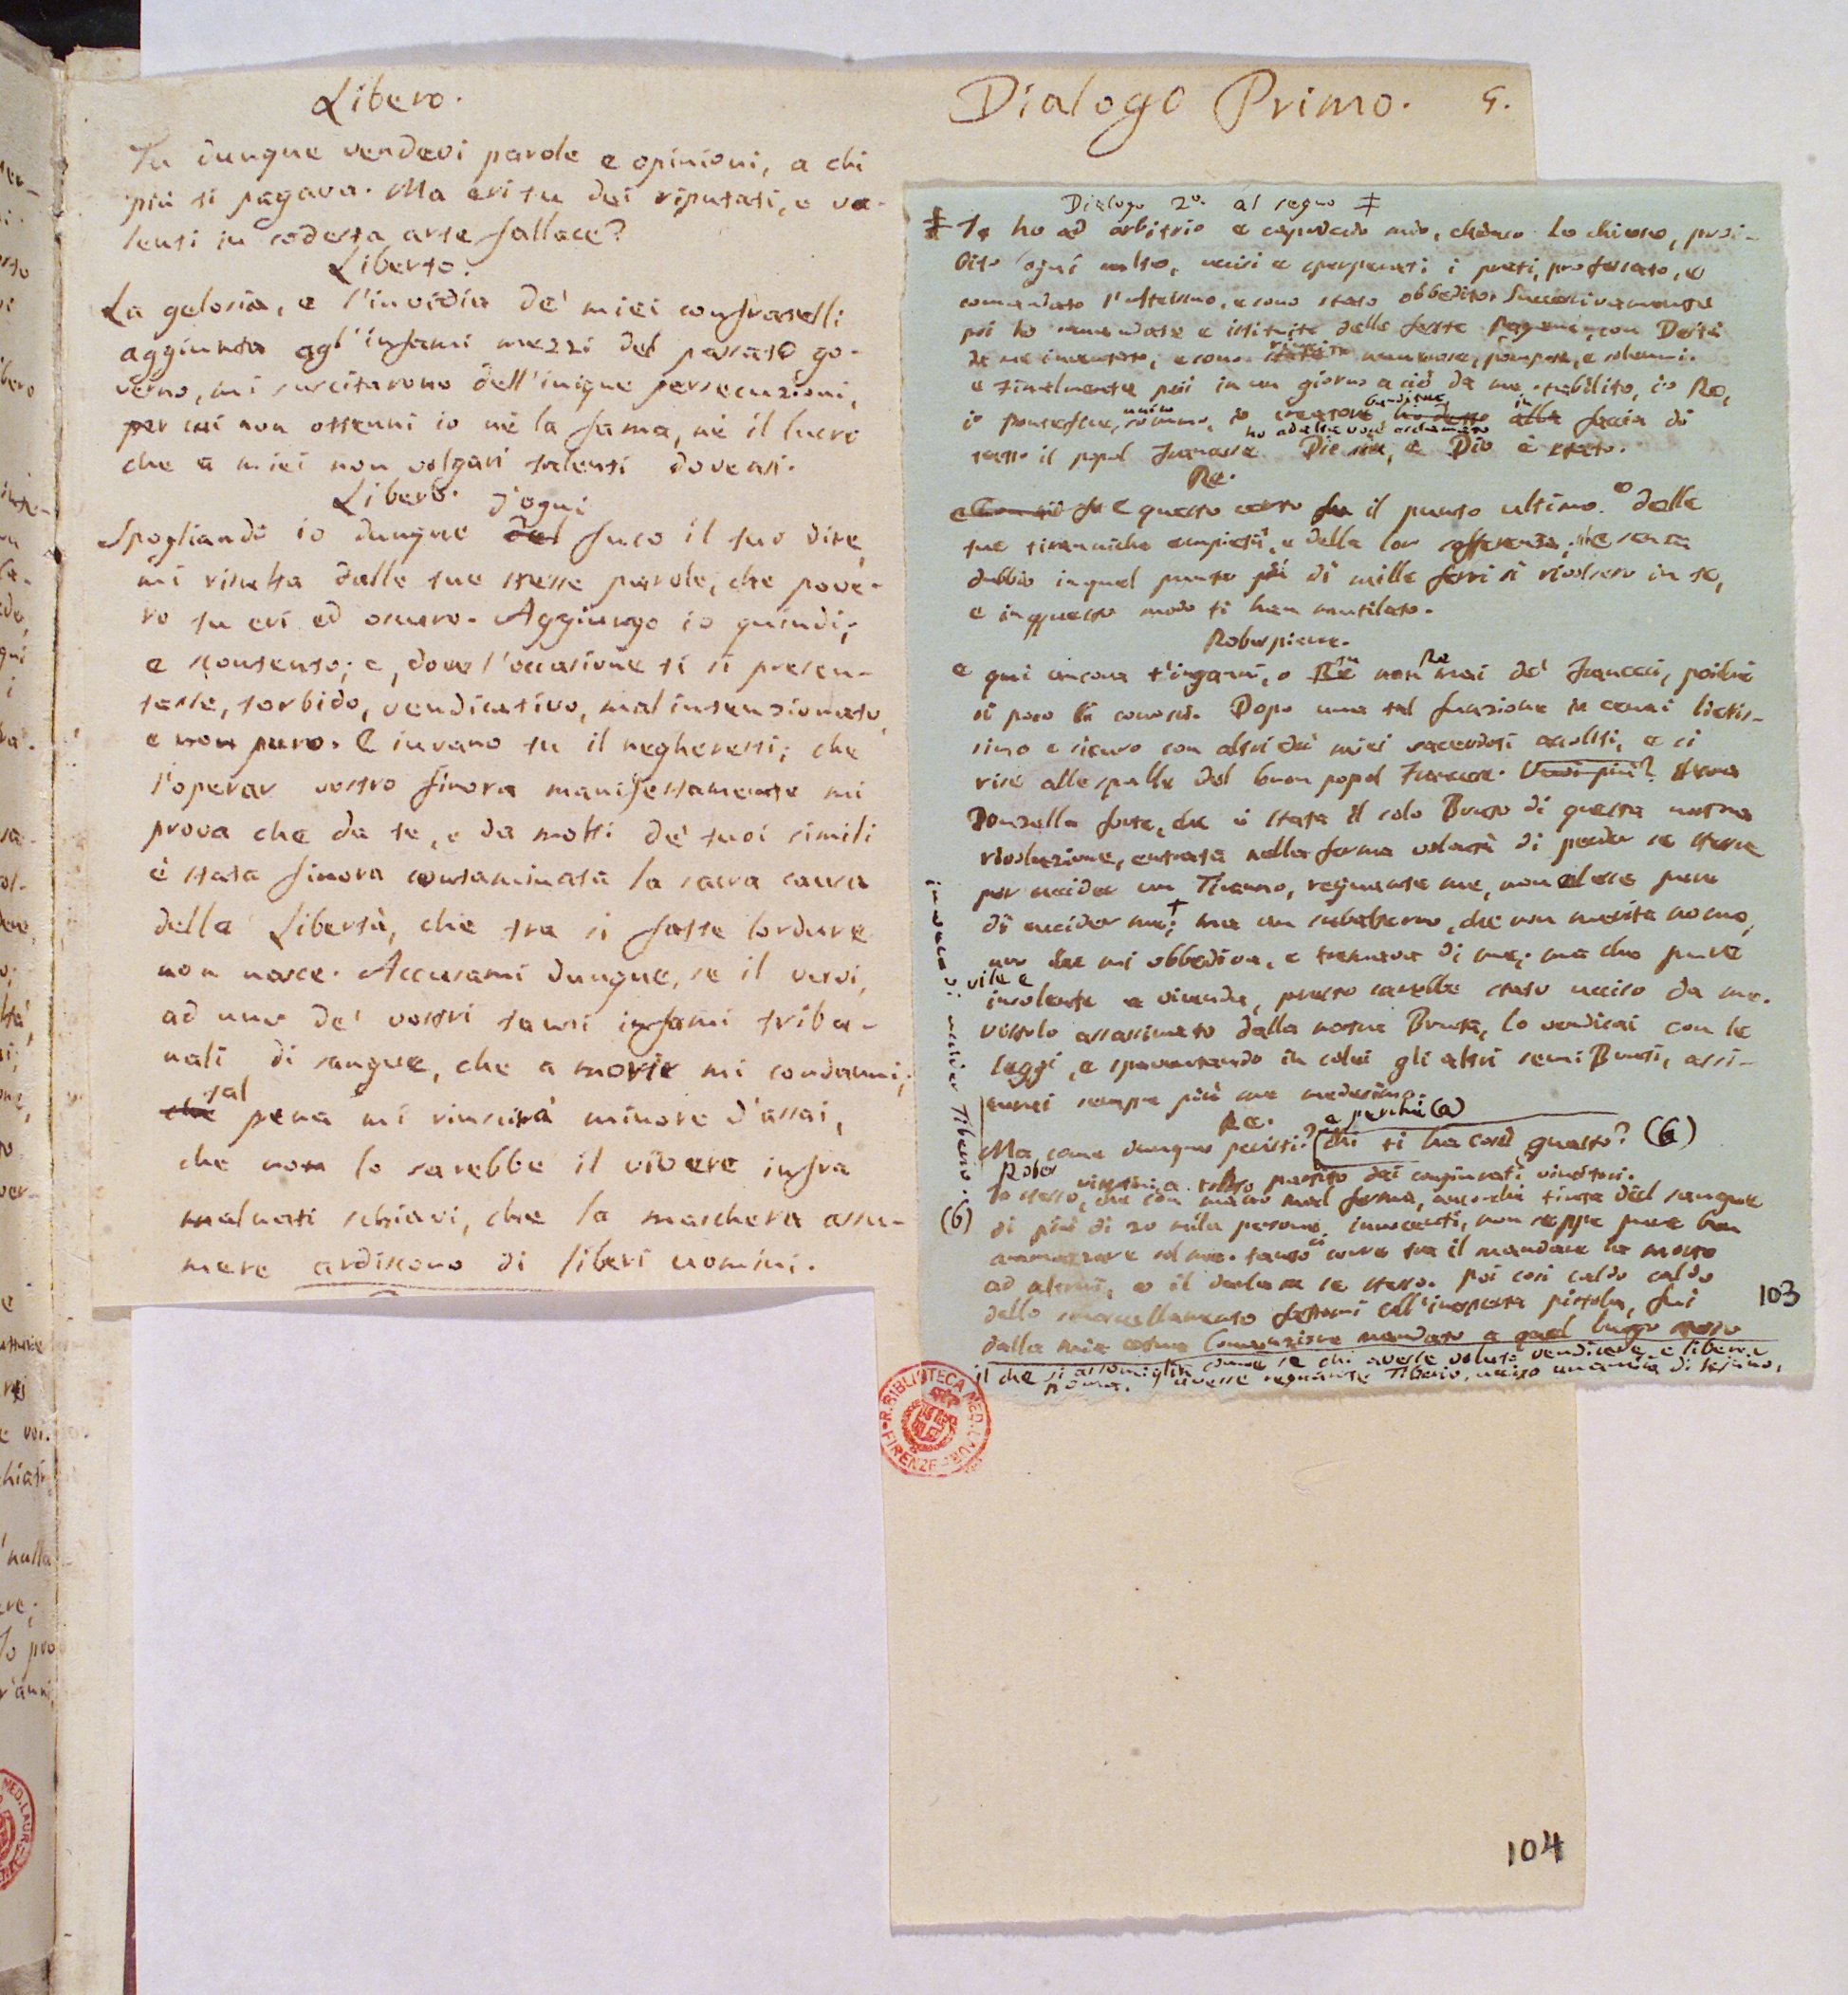 Libero.
Tu dunque vendevi parole e opinioni, a chi
più ti pagava. Ma eri tu dei riputati, e va-
lenti in codesta arte fallace?
Liberto.
La gelosia, e l'invidia de' miei confratelli
aggiunta agl'infami mezzi del passato go-
verno, mi suscitarono dell'inique persecuzioni,
per cui non ottenni io nè la fama, nè il lucro
che a miei non volgari talenti doveasi.
Libero.
d'ogni
Spogliando io dunque del fuco il tuo dire,
mi risulta dalle tue stesse parole, che pove-
ro tu eri ed oscuro. Aggiungo io quindi,
e scontento; e, dove l'occasione ti si presen-
tasse, torbido, vendicativo, mal intenzionato,
e non puro. E invano tu il negheresti; che
l'operar vostro finora manifestamente mi
prova che da te, e da molti de' tuoi simili
è stata finora contaminata la sacra causa
della Libertà, che tra sì fatte lordure
non nasce. Accusami dunque, se il vuoi,
ad uno de' vostri tanti infami tribu-
nali di sangue, che a morir mi condanni;
tal
che pena mi riuscirà minore d'assai,
che non lo sarebbe il vivere infra
malnati schiavi, che la maschera assu-
mere ardiscono di liberi uomini.
Dialogo Primo. 5.
Dialogo 2º. al segno ‡
‡ Io ho ad arbitrio e capriccio mio, chiuso le chiese, proi-
bito ogni culto, uccisi e sperperati i preti, professato, e
comandato l'ateismo, e sono stato obbedito. Successivamente
poi ho comandate e istituite delle feste Pagane, con Deità
da me inventate; e sono state riuscite numerose, pompose, e solenni.
e Finalmente poi in un giorno a ciò da me stabilito, io Re,
io pontefice, unico sommo, io creatore banditore ho detto alla in faccia di
ho ad alta voce esclamato
tutto il popol Francese Dio sia, e Dio è stato.
Re.
E questo certo fu il punto ultimo e delle
tue tiranniche empietà, e della lor sofferenza; che senza
dubbio in quel punto più di mille ferri si rivolsero in te,
e in questo modo ti han mutilato.
Roberpierre.
e qui ancora t'inganni, o Re tu non mai Re de' Francesi, poichè
sì poco li conosci. Dopo una tal funzione io cenai lietis-
simo e sicuro con altri dei miei sacerdoti accoliti, e ci
rise alle spalle del buon popol Francese. Vuoi più? Una
Donzella forte, che è stata il solo Bruto di questa nostra
rivoluzione, entrata nella ferma volontà di perder se stessa
per uccider un Tiranno, regnante me, non elesse pure
di uccider me; + ma un subalterno, che non merita nome,
uno che mi obbediva, e tremava di me; ma che pure
vile e
insolente a vicenda, presto sarebbe stato ucciso da me.
Vistolo assassinato dalla nostra Bruta, lo vendicai con le
leggi, e spaventando in colei gli altri semi Bruti, assi-
curai sempre più me medesimo.
Re.
e perchè (a)
Ma come dunque peristi? chi ti ha così guasto? (6)
Rober
vistomi a tolto partito dai congiurati vincitori.
(6)
Io stesso, che con mano mal ferma, ancorchè tinta del sangue
di più di 20 mila persone innocenti, non seppe pure ben
ammazzare sol me. tanto ci corre tra il mandare la morte
ad altrui, e il darla a se stesso. Poi così caldo caldo
dello smascellamento fattomi coll'inesperta pistola, fui
dalla mia estinta Convenzione mandato a quel luogo stesso
il che si assomiglia come se chi avesse voluto vendicare e liberar
Roma, avesse regnante Tiberio, ucciso un amico di Sejano,
invece di uccider Tiberio.
103
R. BIBLIOTECA MED. LAUR.
FIRENZE
104